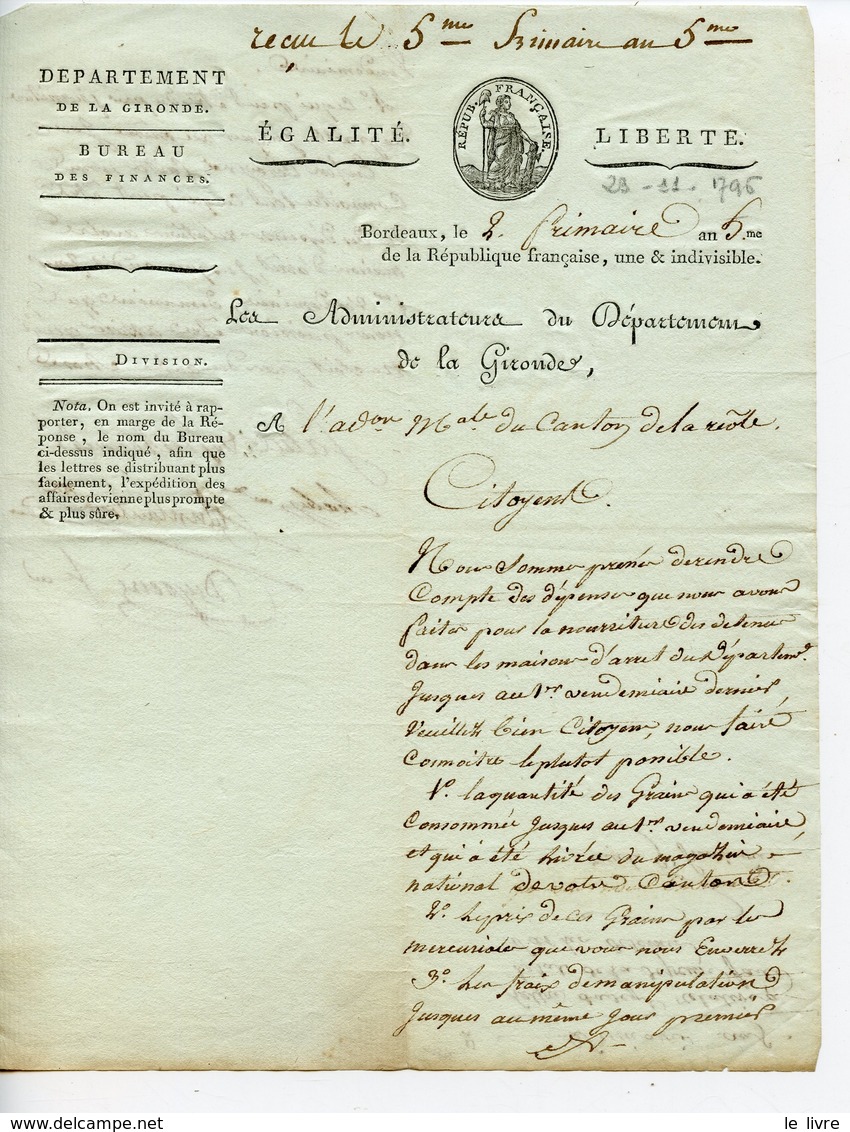 recue le 5me frimaire an 5me
DEPARTEMENT
DE LA GIRONDE.
BUREAU
DES FINANCES.
ÉGALITÉ.
RÉPUB. FRANÇAISE.
LIBERTÉ.
23-11-1796
Bordeaux, le 2. frimaire an 5.me
de la République française, une & indivisible.
Les Administrateurs du Département
de la Gironde,
DIVISION.
Nota. On est invité à rap-
porter, en marge de la Ré-
ponse, le nom du Bureau
ci-dessus indiqué, afin que
les lettres se distribuant plus
facilement, l'expédition des
affaires devienne plus prompte
& plus sûre.
A l'adon Male du Canton de la réole.
Citoyens.
Nous Sommes pressés de rendre
Compte des dépenses que nous avons
faites pour la nourriture des detenus
dans les maisons d'arret du Départemt.
Jusques au 1er vendemiaire dernier,
Veuillez bien Citoyens, nous faire
Connoitre le plutot possible.
1°. la quantité des Grains qui a été
Consommée Jusques au 1er vendemiaire,
et qui a été livrée du magazin
national de votre Canton.
2°. le prix de ces Grains par les
mercuriales que vous nous Enverrez
3°. les frais de manipulation
Jusques au même Jour premier